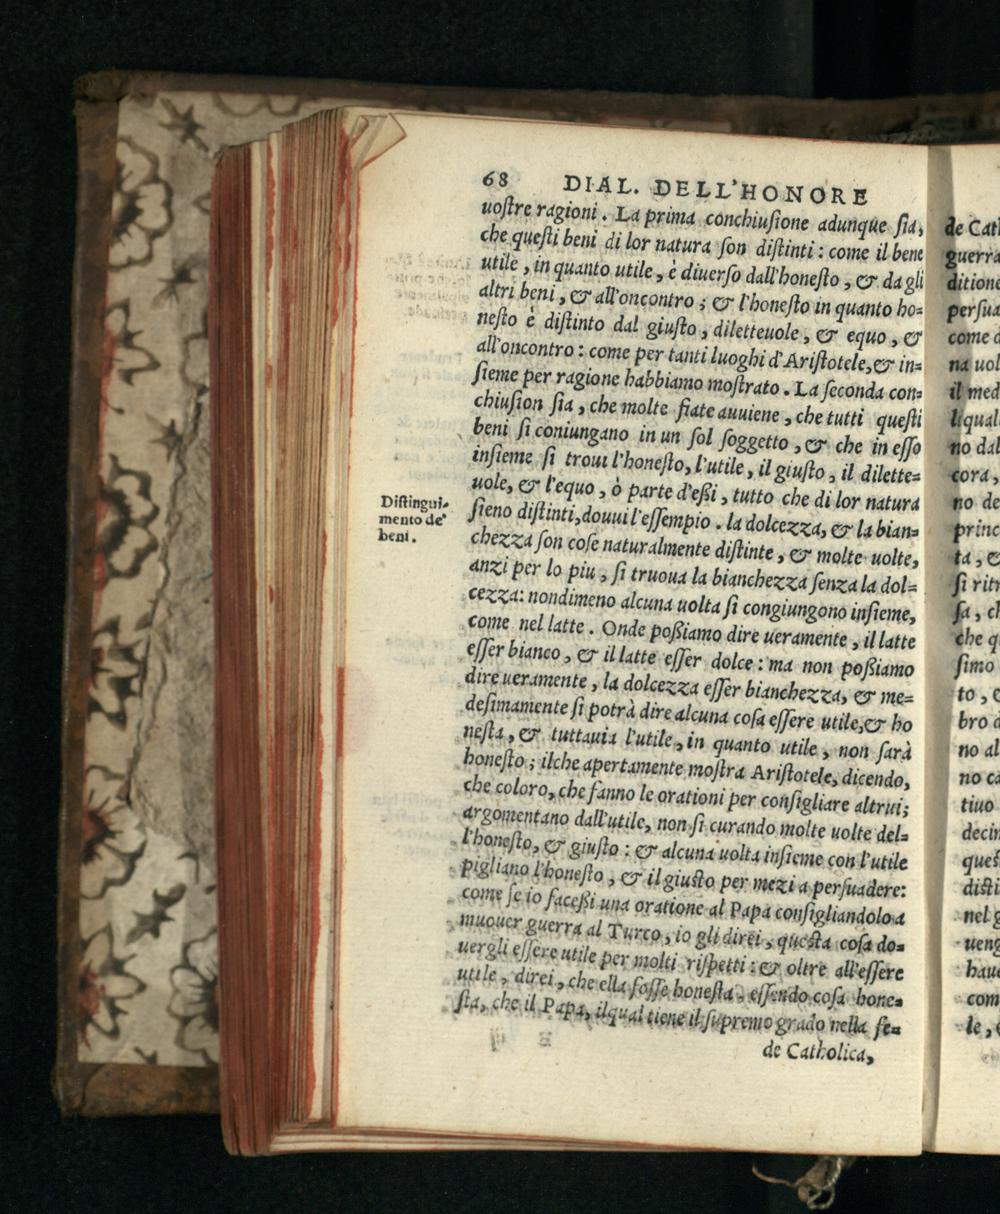 68 DIAL. DELL'HONORE
uoſtre ragioni. La prima conchiuſione adunque ſia,
che queſti beni di lor natura ſon diſtinti: come il bene
utile, in quanto utile, è diuerſo dall'honeſto, & da gli
altri beni, & all'oncontro; & l'honeſto in quanto ho=
neſto è diſtinto dal giuſto, diletteuole, & equo, &
all'oncontro: come per tanti luoghi d'Ariſtotele, & in=
ſieme per ragione habbiamo moſtrato. La ſeconda con=
chiuſion ſia, che molte fiate auuiene, che tutti queſti
beni ſi coniungano in un ſol ſoggetto, & che in eſſo
inſieme ſi troui l'honeſto, l'utile, il giuſto, il dilette=
uole, & l'equo, ò parte d'eßi, tutto che di lor natura
ſieno diſtinti, douui l'eſſempio. la dolcezza, & la bian=
chezza ſon coſe naturalmente diſtinte, & molte uolte,
anzi per lo piu, ſi truoua la bianchezza ſenza la dol=
cezza: nondimeno alcuna uolta ſi congiungono inſieme,
come nel latte. Onde poßiamo dire ueramente, il latte
eſſer bianco, & il latte eſſer dolce: ma non poßiamo
dire ueramente, la dolcezza eſſer bianchezza, & me=
deſimamente ſi potrà dire alcuna coſa eſſere utile, & ho
neſta, & tuttauia l'utile, in quanto utile, non ſarà
honeſto; ilche apertamente moſtra Ariſtotele, dicendo,
che coloro, che fanno le orationi per conſigliare altrui;
argomentano dall'utile, non ſi curando molte uolte del=
l'honeſto, & giuſto: & alcuna uolta inſieme con l'utile
pigliano l'honeſto, & il giuſto per mezi a perſuadere:
come ſe io faceßi una oratione al Papa conſigliandolo a
muouer guerra al Turco, io gli direi, queſta coſa do=
uergli eſſere utile per molti riſpetti: & oltre all'eſſere
utile, direi, che ella foſſe honeſta, eſſendo coſa hone=
ſta, che il Papa, ilqual tiene il ſupremo grado nella ſe=
de Catholica,
Diſtingui-
mento de'
beni.
de Cath
guerra
ditione
perſua
come d
na uol
il med
liquali
no dal
cora,
no de
princ
ta, &
ſi ritr
ſa, ch
che q
ſimo
to, &
bro d
no al
no ca
tiuo
decim
queſt
diſti
nel g
ueng
haue
com
le, &